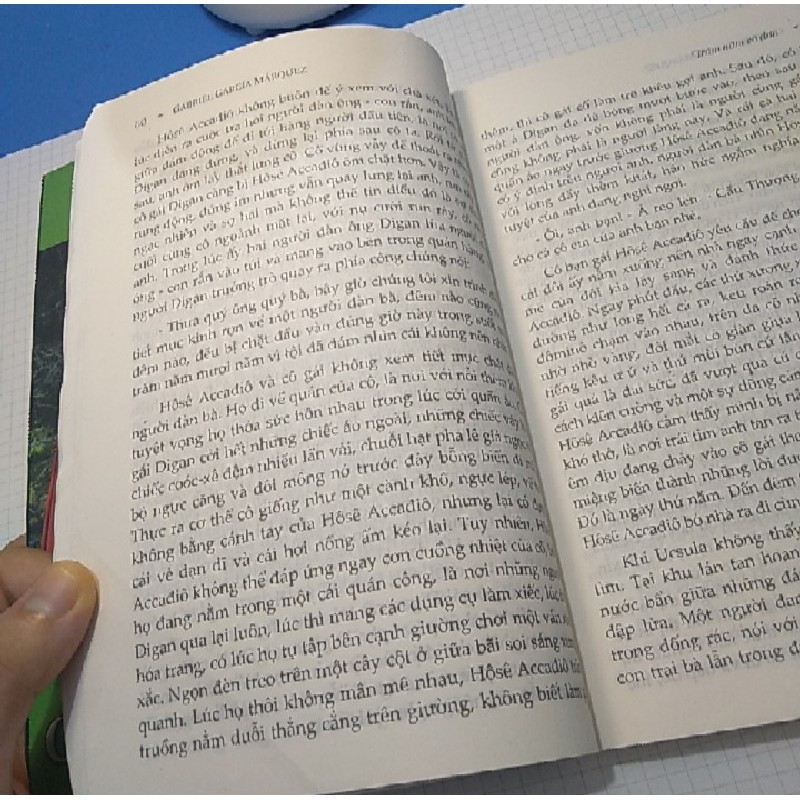 60 * GABRIEL GARCIA MÁRQUEZ
Hôsê Accađiô không buồn để ý xem vở
lúc diễn ra cuộc tra hỏi người đàn ông - con rắn, anh
giữa đám đông để đi tới hàng người đầu tiên, là nơi
Digan đang đứng, và dừng lại phía sau cô ta. Rồi
sau, anh ôm lấy thắt lưng cô. Cô vùng vẫy để thoát ra
cô gái Digan càng bị Hôsê Accađiô ôm chặt hơn. Vậy là
rung động, đứng im nhưng vẫn quay lưng lại anh,
ngạc nhiên và sợ hãi mà không thể tin điều đó là
cuối cùng cô ngoảnh mặt lại, với nụ cười run rẩy,
anh. Trong lúc ấy, hai người đàn ông Digan
ông - con rắn vào túi và mang vào bên trong quán hàng
người Digan trưởng trò quay ra phía công chúng nói:
- Thưa quý ông quý bà, bây giờ chúng tôi xin trình
tiết mục kinh rợn về một người đàn bà, đêm nào cũng
đêm nào, đều bị chặt đầu vào đúng giờ này trong suốt
trăm năm mươi năm vì tội đã dám nhìn cái không nên
Hôsê Accađiô và cô gái không xem tiết mục chặt
người đàn bà. Họ đi về quán của cô, là nơi với nỗi
tuyệt vọng họ thỏa sức hôn nhau trong lúc cởi quần áo.
gái Digan cởi hết những chiếc áo ngoài, những chiếc váy
chiếc coóc-xê đệm nhiều lần vải, chuỗi hạt pha lê giả
bộ ngực căng và đôi mông nở trước đây bỗng biến đi
Thực ra cơ thể cô giống như một cành khô, ngực lép,
không bằng cánh tay của Hôsê Accađiô, nhưng lại có
cái vẻ dạn dĩ và cái hơi nồng ấm kéo lại. Tuy nhiên,
Accađiô không thể đáp ứng ngay cơn cuồng nhiệt của cô
họ đang nằm trong một cái quán công, là nơi những
Digan qua lại luôn, lúc thì mang các dụng cụ làm xiếc,
hóa trang, có lúc họ tụ tập bên cạnh giường chơi một ván
xắc. Ngọn đèn treo trên một cây cột ở giữa bãi soi sáng
quanh. Lúc họ thôi không mân mê nhau, Hôsê Accađiô
truồng nằm duỗi thẳng cẳng trên giường, không biết làm
Trăm năm cô đơn
thêm, thì cô gái cố làm trò khêu gợi anh. Sau đó, có
một ả Digan da đỏ bỗng mượt bước vào, theo sau
người đàn ông, vốn không phải là người cùng
cũng không phải là người làng này. Và tất cả hai
quần áo ngay trước giường Hôsê Accađiô đang
có ý định trêu người anh, người đàn bà nhìn
với lòng đầy thèm khát, háo hức ngắm nghía
tuyệt của anh đang nghỉ ngơi.
- Ôi, anh bạn! - Ả reo lên. - Cầu Thượng
cho cả cô em của anh bạn nhé.
Cô bạn gái Hôsê Accađiô yêu cầu để cho
cái đôi ấy nằm xuống nền nhà ngay cạnh
mê của đôi kia lây sang và đánh thức
Accađiô. Ngay phút đầu, các thứ xương,
dường như lỏng hết cả ra, kêu
đôminô chạm vào nhau, trên da cô
nhờ nhờ vàng, đôi mắt cô giàn giụa
tiếng kêu ư ử và thứ mùi bùn cứ
gái quả là đại sức đã vượt qua
cách kiên cường và một sự dũng cảm
Hôsê Accađiô cảm thấy mình bị
khó thở, là nơi trái tim anh tan ra
êm dịu đang chảy vào cô gái
miệng biến thành những lời
Đó là ngày thứ năm. Đến đêm
Hôsê Accađiô bỏ nhà ra đi
Khi Ursula không thấy
tìm. Tại khu lán tan hoang
nước bẩn giữa những
dập lửa. Một người
trong đống rác, nói với
con trai bà lẫn trong